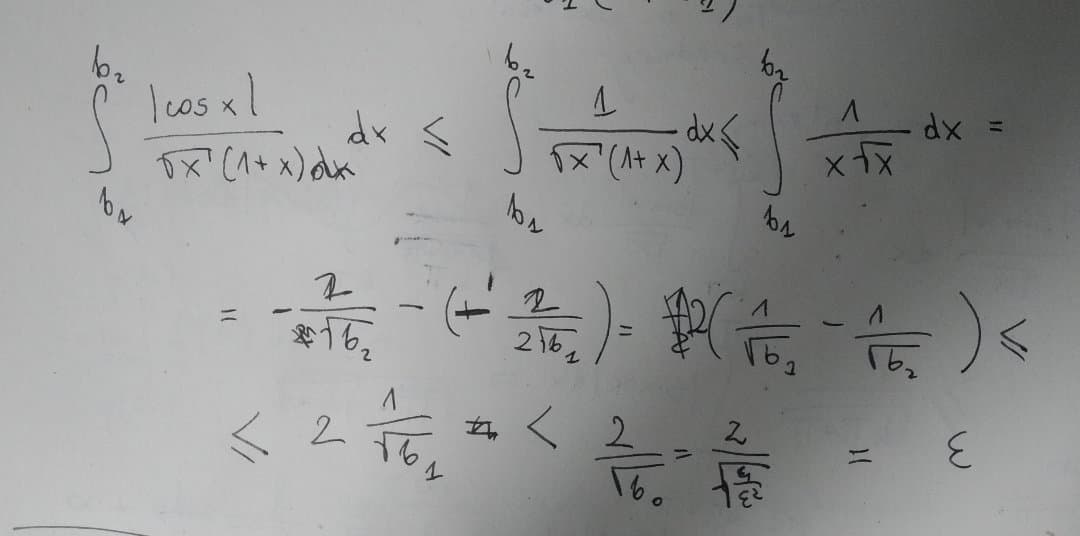 ∫_{b₁}^{b₂} |cos x| / (√x (1+x)) dx ≤ ∫_{b₁}^{b₂} 1 / (√x (1+x)) dx ≤ ∫_{b₁}^{b₂} 1 / (x√x) dx =
= - 2 / √b₂ - (- 2 / (2√b₁)) = 2 (1 / √b₁ - 1 / √b₂) ≤
≤ 2 1 / √b₁ < 2 / √b₀ = 2 / √(4 / ε²) = ε